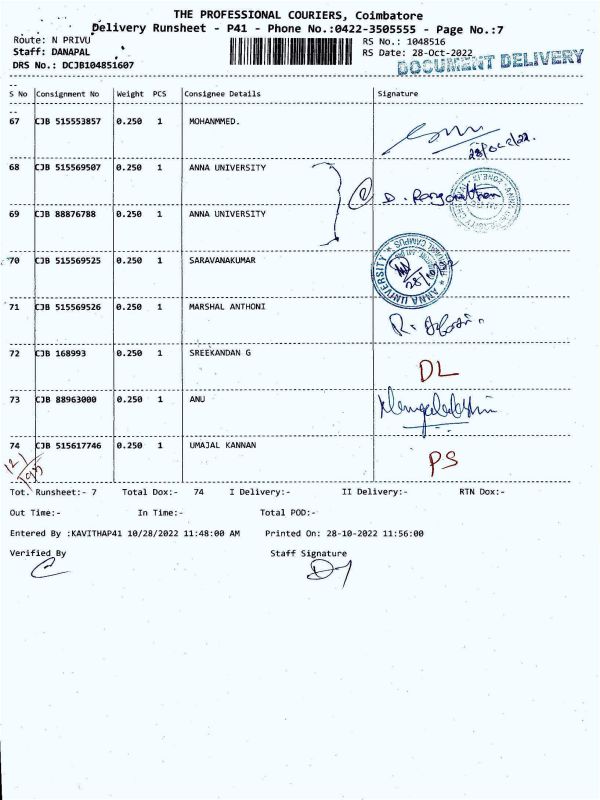 THE PROFESSIONAL COURIERS, Coimbatore
Delivery Runsheet - P41 - Phone No.:0422-3505555 - Page No.:7
Route: N PRIVU
RS No.: 1048516
Staff: DANAPAL
RS Date: 28-Oct-2022
DRS No.: DCJB104851607
DOCUMENT DELIVERY
S No Consignment No Weight PCS Consignee Details Signature
67 CJB 515553857 0.250 1 MOHANMMED.
68 CJB 515569507 0.250 1 ANNA UNIVERSITY
69 CJB 88876788 0.250 1 ANNA UNIVERSITY
70 CJB 515569525 0.250 1 SARAVANAKUMAR
ANNA UNIVERSITY
28/10/22
71 CJB 515569526 0.250 1 MARSHAL ANTHONI
72 CJB 168993 0.250 1 SREEKANDAN G
DL
73 CJB 88963000 0.250 1 ANU
74 CJB 515617746 0.250 1 UMAJAL KANNAN
PS
Tot. Runsheet:- 7 Total Dox:- 74 I Delivery:- II Delivery:- RTN Dox:-
Out Time:- In Time:- Total POD:-
Entered By :KAVITHAP41 10/28/2022 11:48:00 AM Printed On: 28-10-2022 11:56:00
Verified By Staff Signature